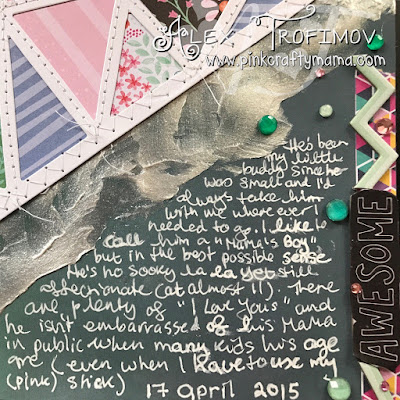 Alex Trofimov
www.pinkcraftymama.com
He's been
my little
buddy since he
was small and I'd
always take him
with me where ever I
needed to go. I like to
call him a "Mama's Boy"
but in the best possible sense
He's no sooky la la yet still
affectionate (at almost 11). There
are plenty of "I love yous" and
he isn't embarrassed of his Mama
in public when many kids his age
are (even when I have to use my
(pink) stick)
17 april 2015
AWESOME